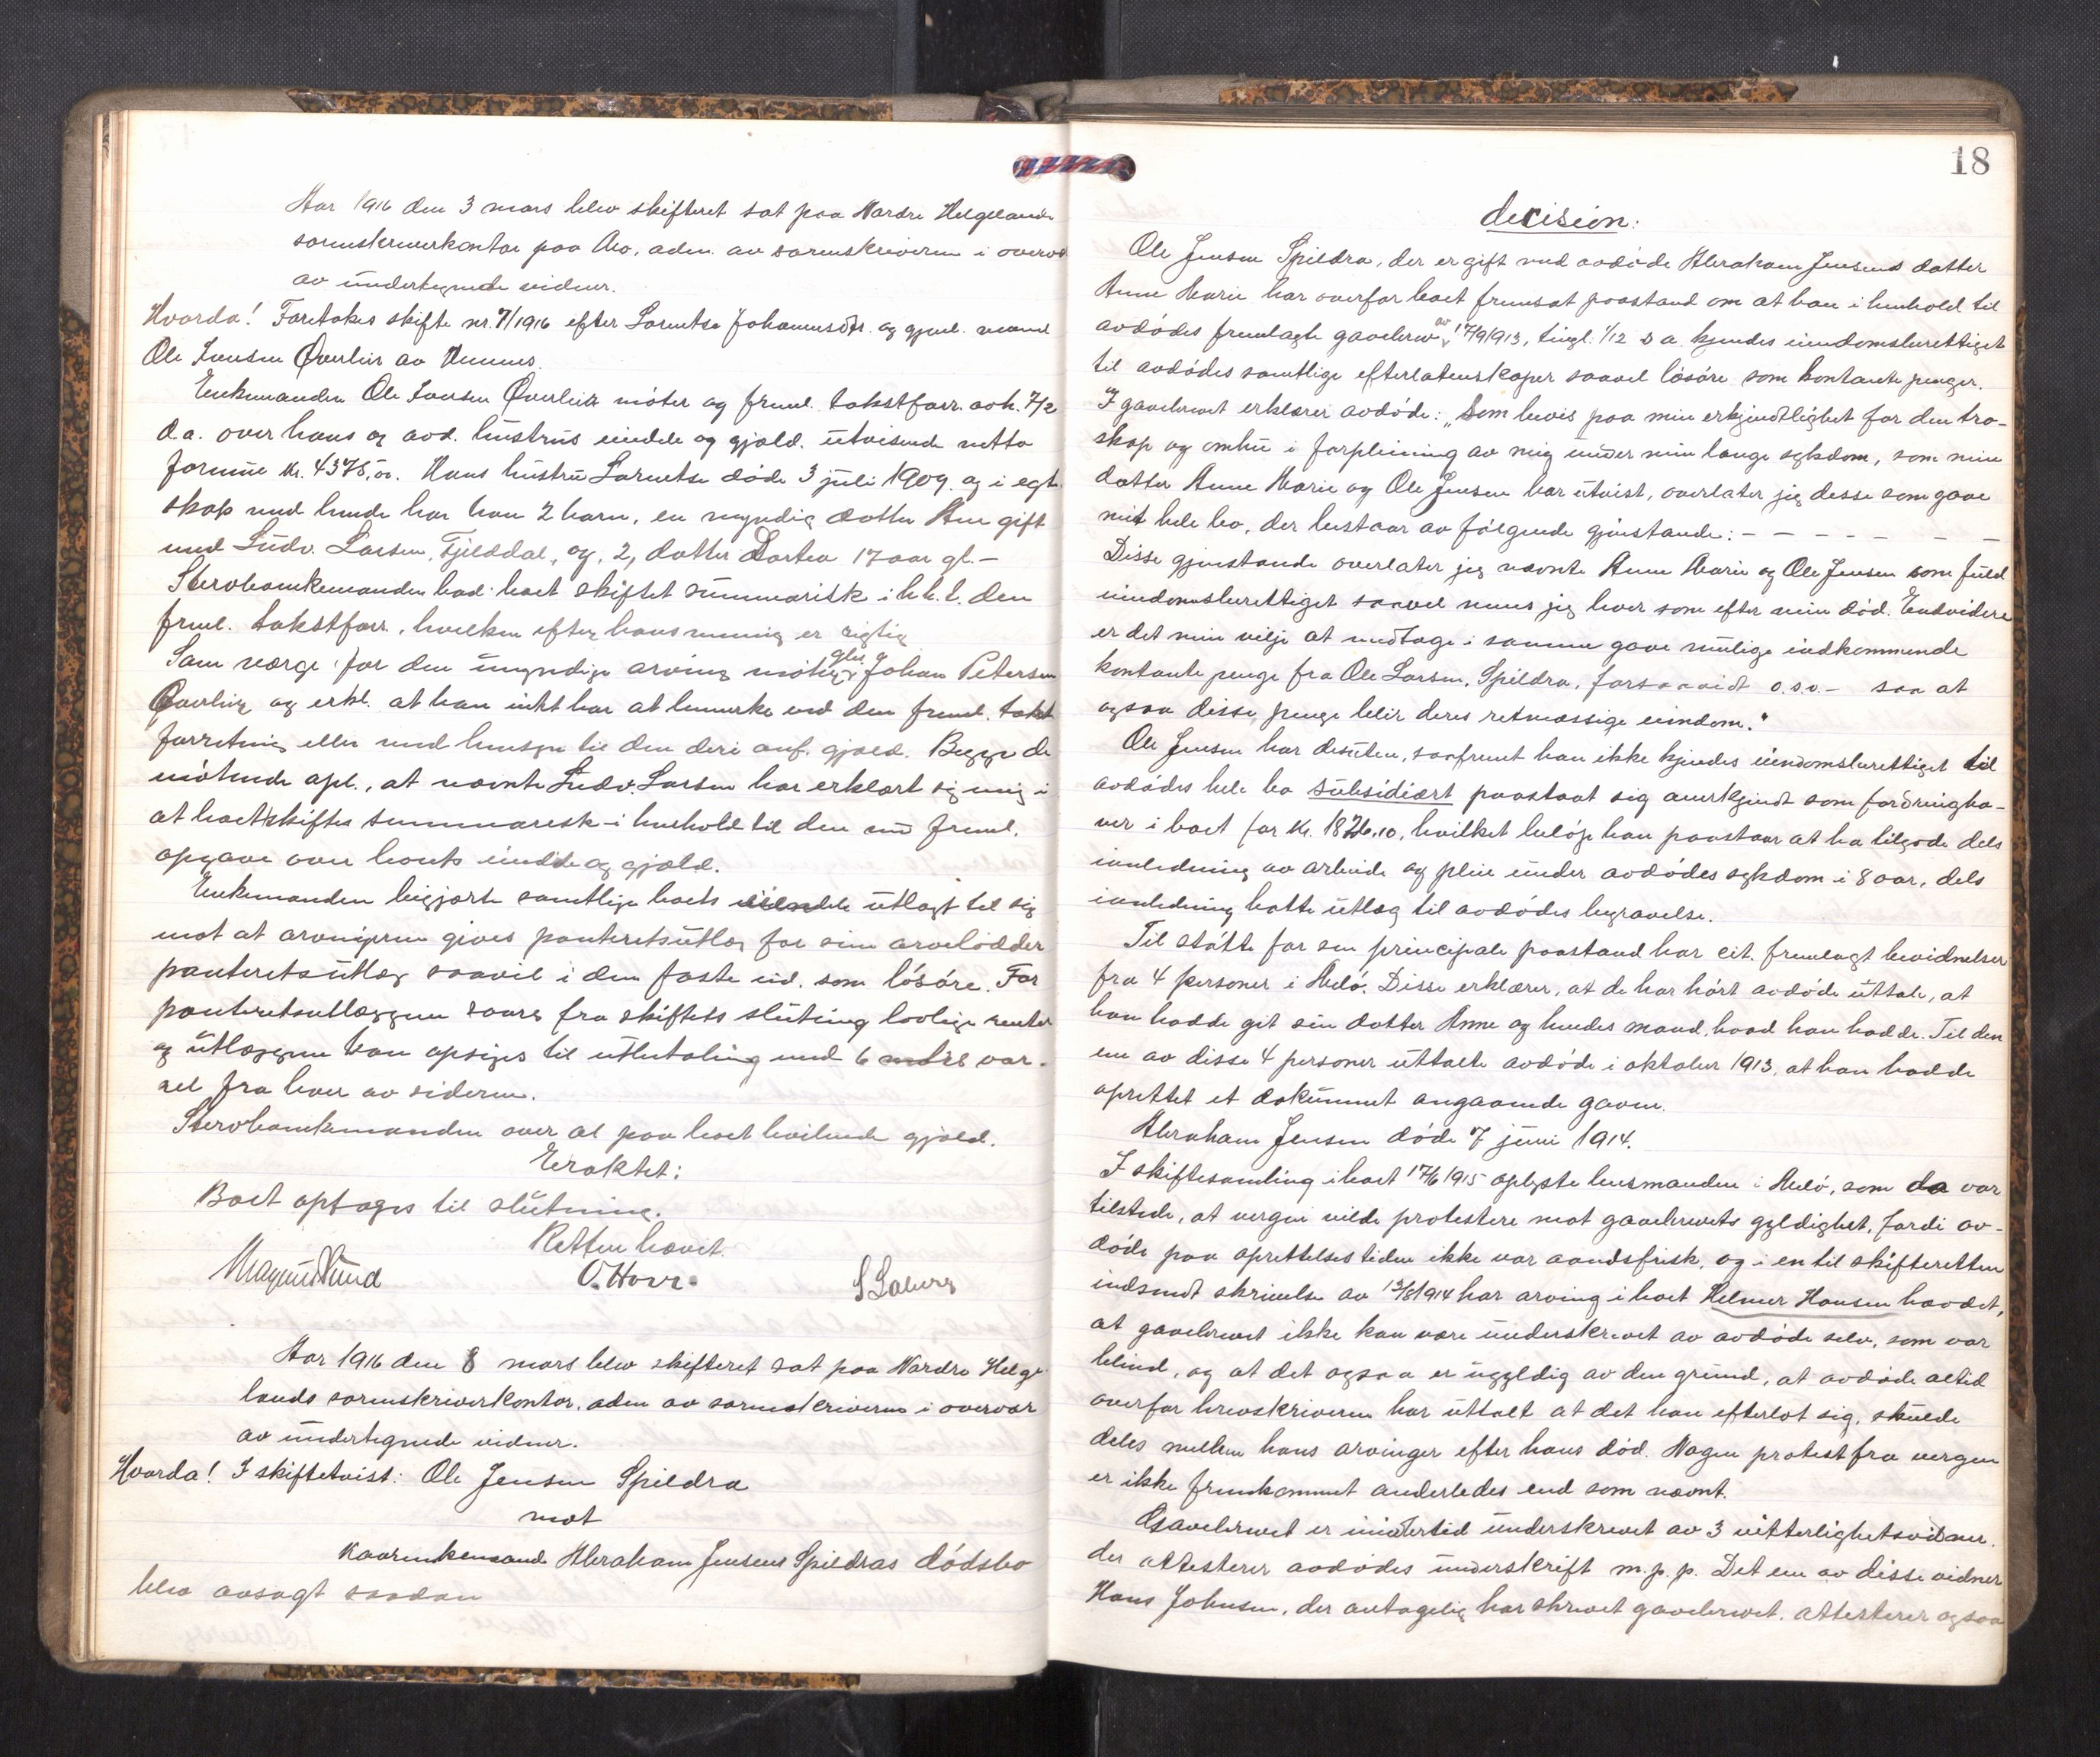 Aar 1916 den 3 mars blev skifteret sat paa Nordre Helgelands
sorenskriverkontor paa Mo, adm. av sorenskriveren i overvær
av undertegnede vidner.
Hvorda! Foretokes skifte nr. 7/1916 efter Lorntse Johannesdtr. og gjenl. mand
Ole Iversen Øverlier av Hemnes.
Enkemanden Ole Iversen Øverlier møter og freml. takstforr. avh. 7/2
d.a. over hans og avd. hustrus eiendele og gjæld utvisende netto
formue kr. 4375,00. Hans hustru Lorntse døde 3 juli 1909 og i egte-
skap med hende har han 2 barn, en myndig datter Ane gift
med Ludv. Larsen, Fjelddal, og, 2, datter Dortea 17 aar gl. –
Stervboenkemanden bad boet skiftet summarisk i h.h.t. den
freml. takstforr., hvilken efter hans mening er rigtig
Som verge for den umyndige arving møter gbr. Johan Petersen
Øverlier og erkl. at han intet har at bemerke ved den freml. takst
forretning eller med hensyn til den deri anf. gjæld. Begge de
møtende opl., at nævnte Ludv. Larsen har erklært sig enig i
at boet skiftes summarisk i henhold til den nu freml.
opgave over boets eiendele og gjæld.
Enkemanden begjærte samtlige boets eiendele utlagt til sig
mot at arvingerne gives panteretsutlæg for sine arvelodder
panteretsutlæg saavel i den faste eid. som løsøre. For
panteretsutlæggene svares fra skiftets slutning lovlige renter
og utlæggene kan opsiges til utbetaling med 6 mdrs var-
sel fra hver av siderne.
Stervboenkemanden over al paa boet hvilende gjæld.
Eraktet:
Boet optages til slutning.
Retten hævet.
Magnus Lund O. Hovr. S Laberg
Aar 1916 den 8 mars blev skifteret sat paa Nordre Helge
lands sorenskriverkontor, adm av sorenskriveren i overvær
av undertegnede vidner.
Hvorda! I skiftetvist: Ole Jensen Spildra
mot
kaarenkemand Abraham Jensens Spildras dødsbo
blev avsagt saadan
18
decision:
Ole Jensen Spildra, der er gift med avdøde Abraham Jensens datter
Anne Marie har overfor boet fremsat paastand om at han i henhold til
avdødes fremlagte gavebrev av 17/9 1913, tingl. 1/12 s a. kjendes eiendomsberettiget
til avdødes samtlige efterlatenskaper saavel løsøre som kontante penger.
I gavebrevet erklærer avdøde: „Som bevis paa min erkjendtlighet for den tro-
skap og omhu i forpleining av mig under min lange sykdom, som min
datter Anne Marie og Ole Jensen har utvist, overlater jeg desse som gave
mit hele bo, der bestaar av følgende gjenstande: – – – – – – –
Disse gjenstande overlater jeg nævnte Anne Marie og Ole Jensen som fuld
eiendomsberettiget saavel mens jeg lever som efter min død. Endvidere
er det min vilje at medtage i samme gave mulige indkommende
kontante penge fra Ole Larsen, Spildra, forsaavidt o.s.v. – saa at
ogsaa disse penge blir deres retmæssige eiendom."
Ole Jensen har desuten, saafremt han ikke kjendes eiendomsberettiget til
avdødes hele bo subsidiært paastaat sig anerkjendt som fordringsha-
ver i boet for kr. 1826,10, hvilket beløp han paastaar at ha tilgode dels
i anledning av arbeide og pleie under avdødes sykdom i 8 aar, dels
i anledning hatte utlæg til avdødes begravelse.
Til støtte for sin principale paastand har cit. fremlagt bevidnelser
fra 4 personer i Melø. Disse erklærer, at de har hørt avdøde uttale, at
han hadde git sin datter Anne og hendes mand, hvad han hadde. Til den
ene av disse 4 personer uttalte avdøde i oktober 1913, at han hadde
oprettet et dokument angaaende gaven.
Abraham Jensen døde 7 juni 1914.
I skiftesamling i boet 17/6 1915 oplyste lensmanden i Melø, som da var
tilstede, at vergen vilde protestere mot gavebrevets gyldighet, fordi av-
døde paa oprettelsestiden ikke var aandsfrisk, og i en til skifteretten
indsendt skrivelse av 13/8 1914 har arving i boet Helmer Hansen hævdet,
at gavebrevet ikke kan være underskrevet av avdøde selv, som var
blind, og at det ogsaa er ugyldig av den grund, at avdøde altid
overfor brevskriveren har uttalt at det han efterlot sig, skulde
deles mellem hans arvinger efter hans død. Nogen protest fra vergen
er ikke fremkommet anderledes end som nævnt.
Gavebrevet er imidlertid underskrevet av 3 vitterlighetsvidner.
der attesterer avdødes underskrift m. p. p. Det ene av disse vidner
Hans Johnsen, der antagelig har skrevet gavebrevet, attesterer ogsaa